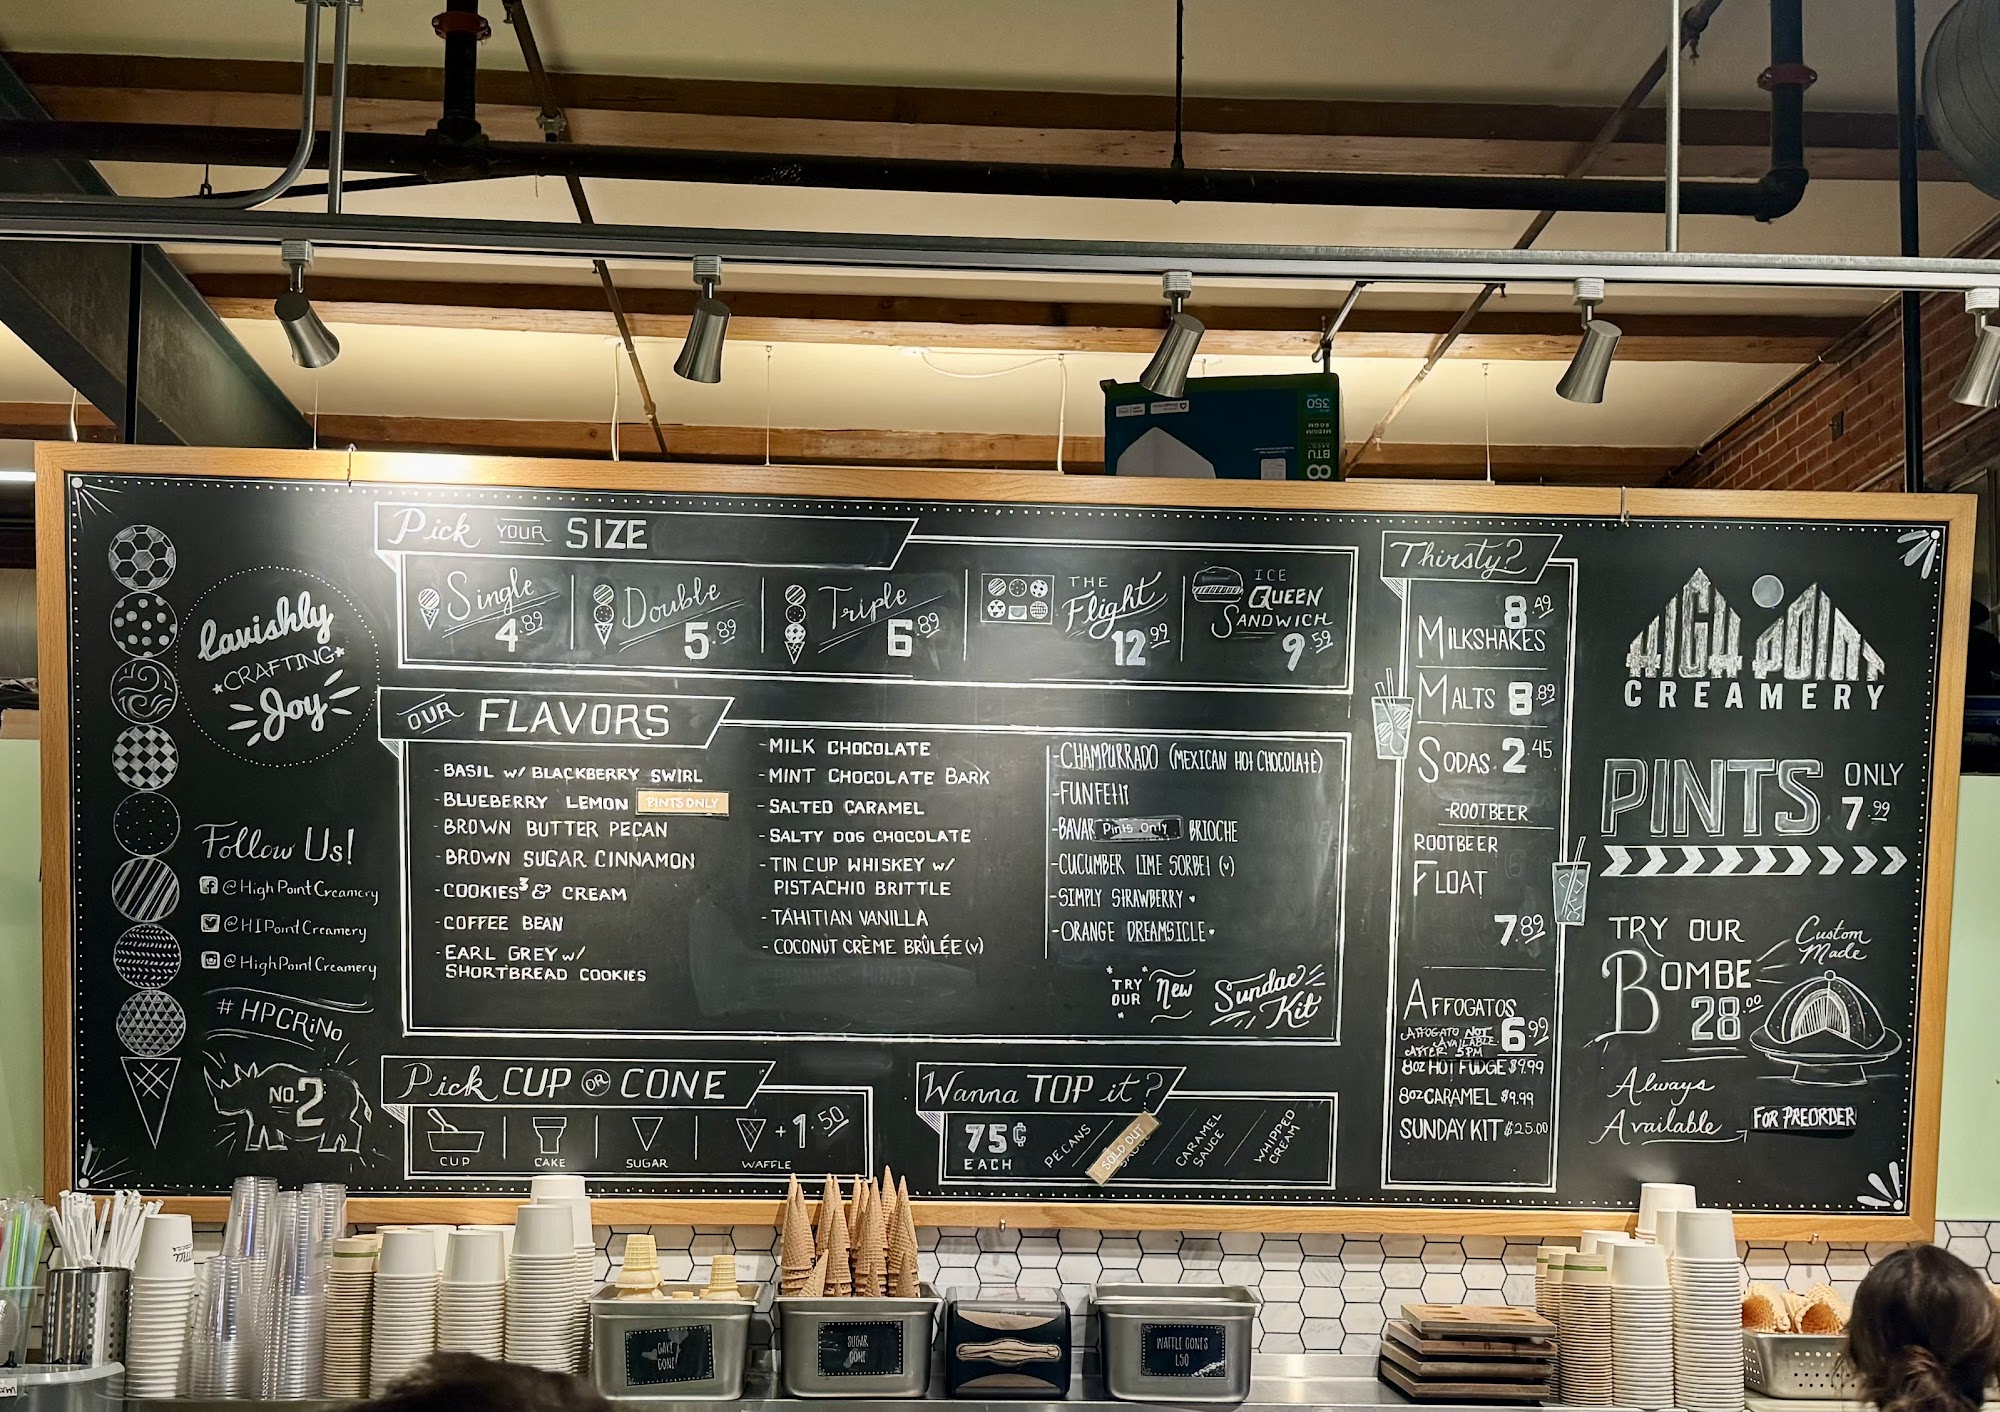 350
MEDIUM
ROOM
BTU
8
lavishly
CRAFTING
Joy
Follow Us!
@HighPointCreamery
@HIPointCreamery
@HighPointCreamery
#HPCRiNo
NO. 2
Pick YOUR SIZE
Single
4.89
Double
5.89
Triple
6.89
THE
Flight
12.99
ICE
QUEEN
SANDWICH
9.59
OUR FLAVORS
- BASIL w/ BLACKBERRY SWIRL
- BLUEBERRY LEMON PINTS ONLY
- BROWN BUTTER PECAN
- BROWN SUGAR CINNAMON
- COOKIES³ & CREAM
- COFFEE BEAN
- EARL GREY w/
SHORTBREAD COOKIES
- MILK CHOCOLATE
- MINT CHOCOLATE BARK
- SALTED CARAMEL
- SALTY DOG CHOCOLATE
- TIN CUP WHISKEY w/
PISTACHIO BRITTLE
- TAHITIAN VANILLA
- COCONUT CRÈME BRÛLÉE (V)
- CHAMPURRADO (MEXICAN HOT CHOCOLATE)
- FUNFETTI
- BAVAR Pints Only BRIOCHE
- CUCUMBER LIME SORBET (V)
- SIMPLY STRAWBERRY
- ORANGE DREAMSICLE
"TRY OUR" New Sundae Kit
Pick CUP OR CONE
CUP
CAKE
SUGAR
WAFFLE
+ 1.50
Wanna TOP it?
75¢
EACH
PECANS
SOLD OUT
CARAMEL
SAUCE
WHIPPED
CREAM
Thirsty?
8.49
MILKSHAKES
MALTS 8.89
SODAS 2.45
-ROOTBEER
ROOTBEER
FLOAT
7.89
AFFOGATOS
6.99
AFFOGATO NOT
AVAILABLE
AFTER 5PM
8OZ HOT FUDGE $9.99
8OZ CARAMEL $9.99
SUNDAY KIT $25.00
HIGH POINT
CREAMERY
PINTS ONLY
7.99
TRY OUR
BOMBE
28.00
Custom
Made
Always
Available
FOR PREORDER
CAKE
CONE
SUGAR
CONE
WAFFLE CONES
1.50